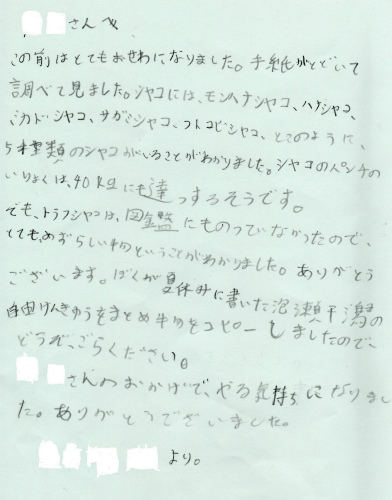 さんへ
この前はとてもおせわになりました。手紙がとどいて
調べて見ました。シャコには、モンハナシャコ、ハナシャコ、
ミカドシャコ、サガミシャコ、フトユビシャコ、とこのように、
5種類のシャコがいることがわかりました。シャコのパンチの
いりょくは、40kgにも達っするそうです。
でも、トラフシャコは、図鑑にものっていなかったので、
とても、めずらしい物ということがわかりました。ありがとう
ございます。ぼくが夏休みに書いた泡瀬干潟の
自由けんきゅうをまとめ物をコピーしましたので、
どうぞ、ごらください。
さんのおかげで、やる気持ちになりまし
た。ありがとうございました。
より。